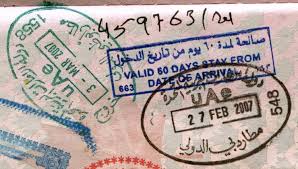 459763/24
1558
3 MAR 2007
UAE
صالحة لمدة ٦٠ يوم من تاريخ الدخول
VALID 60 DAYS STAY FROM
663 DATE OF ARRIVAL
UAE
27 FEB 2007
548
مطار دبي الدولي